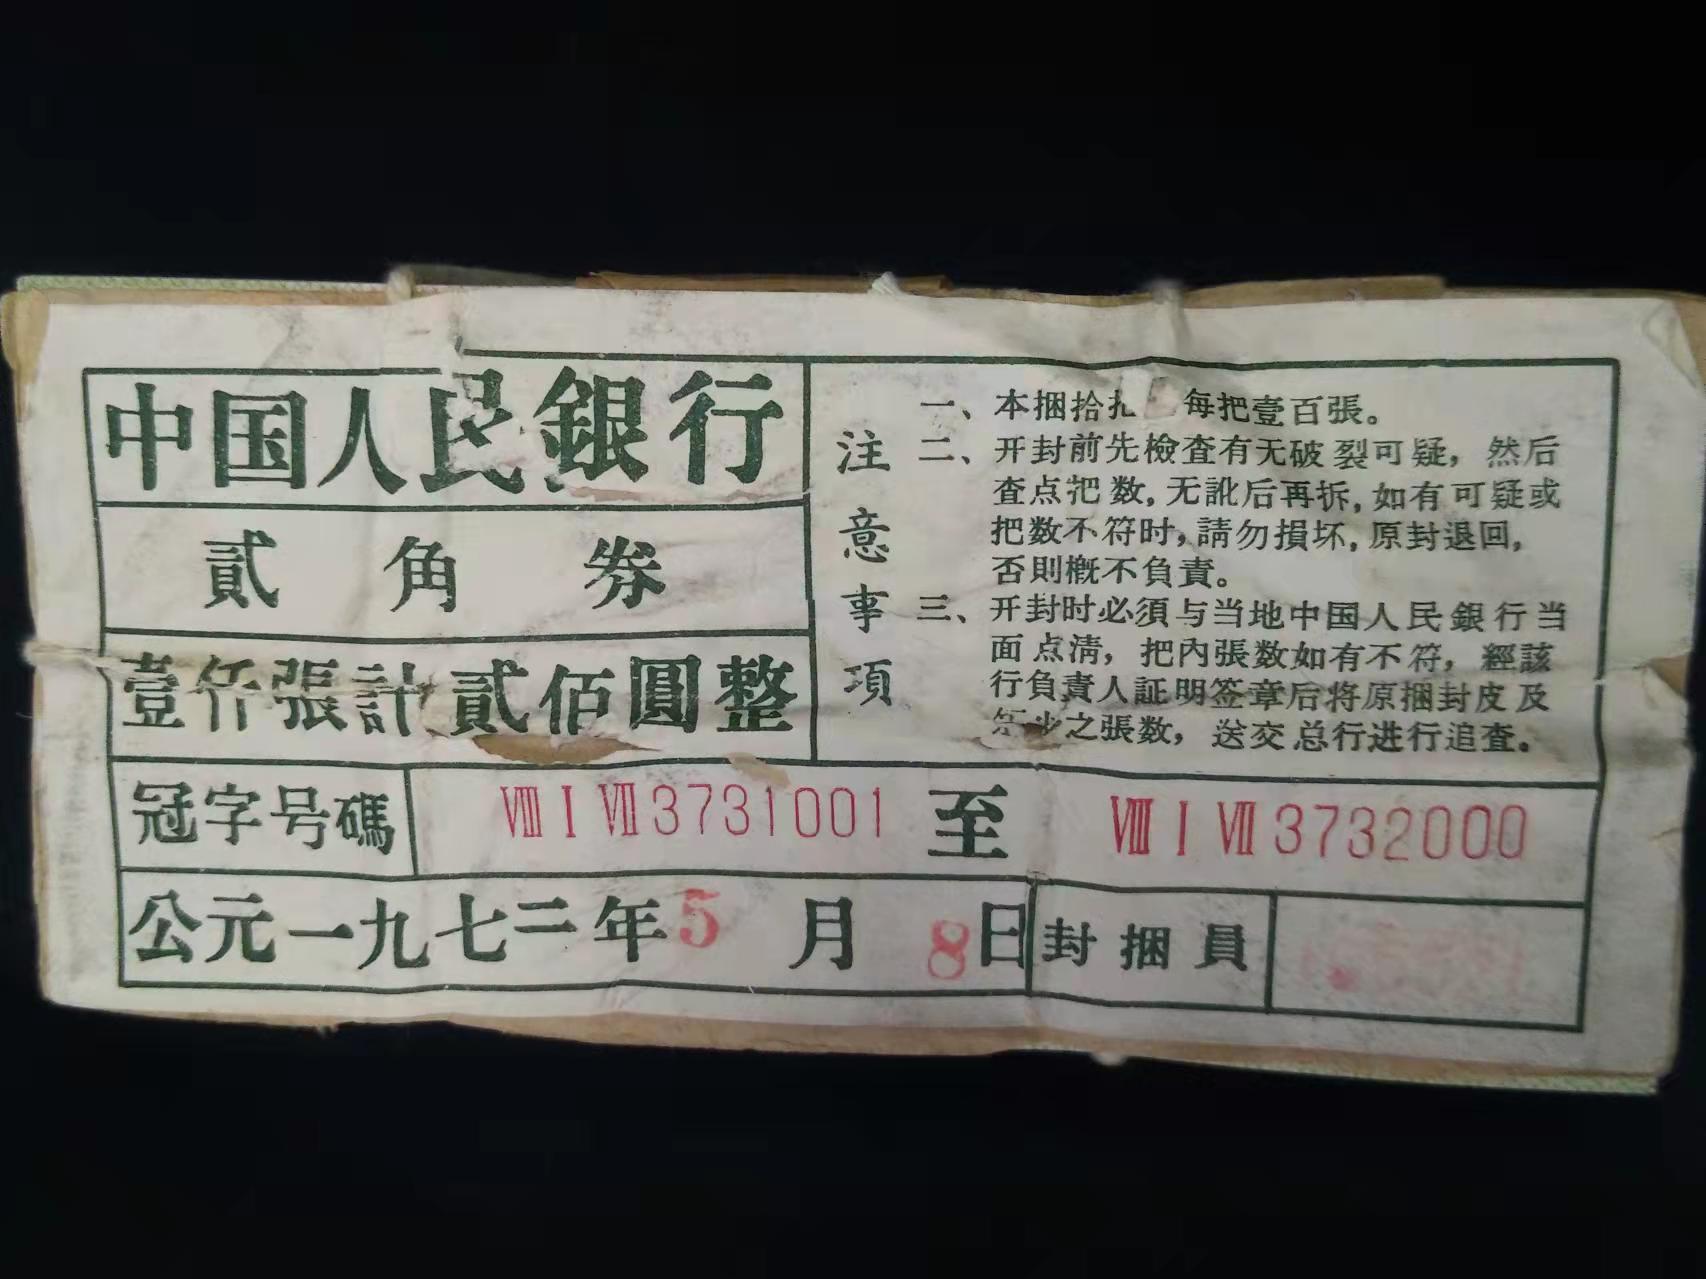 中国人民銀行
貳角券
壹仟張計貳佰圓整
注意事項
一、本捆拾把 每把壹百張。
二、开封前先檢査有无破裂可疑，然后
査点把数，无訛后再拆，如有可疑或
把数不符时，請勿損坏，原封退回，
否則槪不負責。
三、开封时必須与当地中国人民銀行当
面点清，把内張数如有不符，經該
行負責人証明签章后将原捆封皮及
少之張数，送交总行进行追査。
冠字号碼 ⅧⅠⅦ3731001 至 ⅧⅠⅦ3732000
公元一九七二年5月8日 封捆員